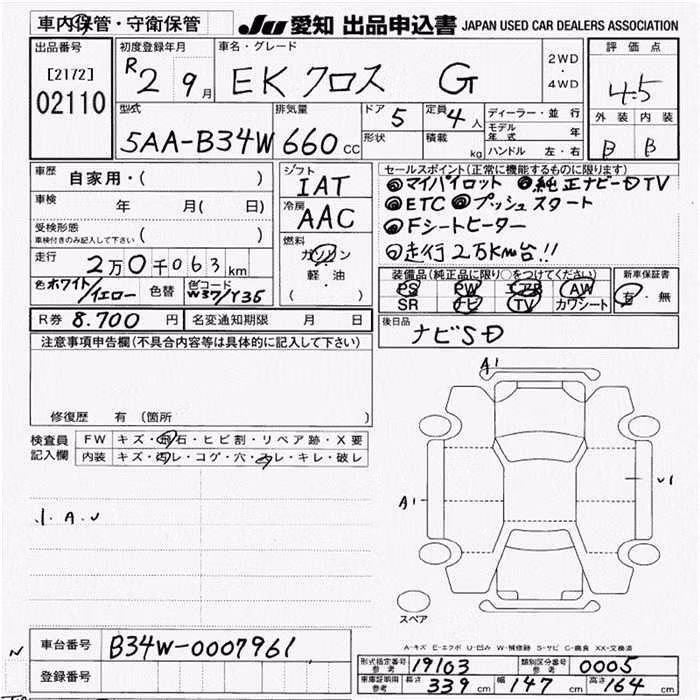 車内保管・守衛保管
JU 愛知 出品申込書 JAPAN USED CAR DEALERS ASSOCIATION
出品番号
[2172]
02110
初度登録年月
R2 9月
車名・グレード
EK クロス G
2WD
・
4WD
評価点
4.5
外装 内装
B B
型式
5AA-B34W
排気量
660 CC
ドア 5
形状
定員 4人
積載 kg
ディーラー・並行
モデル年式 年
ハンドル 左・右
車歴 自家用・( )
車検 年 月( 日)
受検形態
車検付きのみ記入して下さい ( )
走行 2万0千063km
色 ホワイト/イエロー 色替 色コード W37/Y35
シフト
IAT
冷房
AAC
燃料
ガソリン
軽・油
( )
セールスポイント(正常に機能するものに限ります)
◎マイパイロット ◎純正ナビ-D TV
◎ETC ◎プッシュスタート
◎Fシートヒーター
◎走行2万Km台!!
装備品(純正品に限り○をつけてください)
PS PW エアB AW
SR ナビ TV カワシート
新車保証書
有・無
R券 8.700円 名変通知期限 月 日
後日品
ナビSD
注意事項申告欄(不具合内容等は具体的に記入して下さい)
修復歴 有(箇所 )
検査員
記入欄
FW キズ・飛石・ヒビ割・リペア跡・X要
内装 キズ・汚レ・コゲ・穴・スレ・キレ・破レ
小.A.U
A1
U1
A1
スペア
A-キズ E-エクボ U-凹み W-補修跡 S-サビ C-腐食 XX-交換済
車台番号 B34W-0007961
登録番号
形式指定番号
参考
19103
類別区分番号
参考
0005
車庫証明用
参考
長さ 339cm 幅 147cm 高さ 164cm